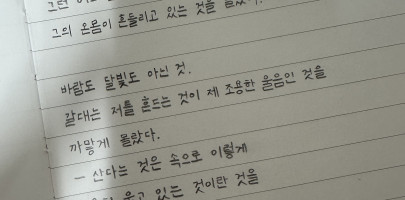 그의 온몸이 흔들리고 있는 것을
바람도 달빛도 아닌 것.
갈대는 저를 흔드는 것이 제 조용한 울음인 것을
까맣게 몰랐다.
— 산다는 것은 속으로 이렇게
울고 있는 것이란 것을